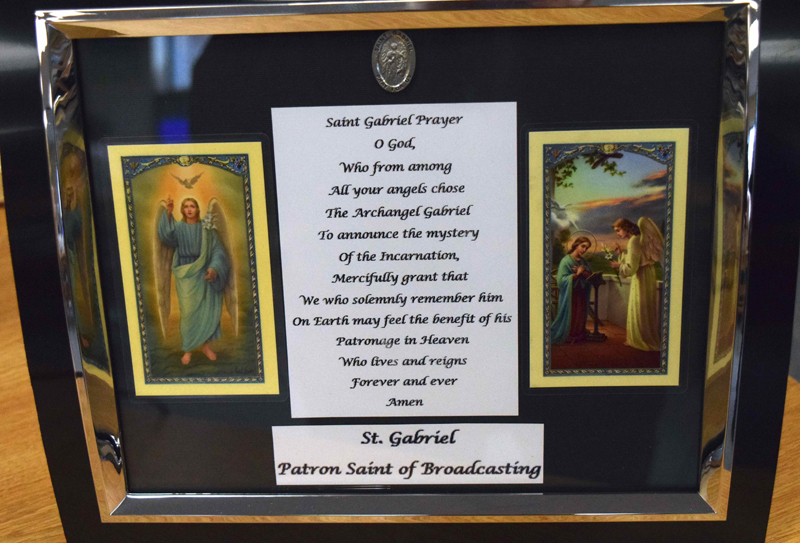 Saint Gabriel Prayer
O God,
Who from among
All your angels chose
The Archangel Gabriel
To announce the mystery
Of the Incarnation,
Mercifully grant that
We who solemnly remember him
On Earth may feel the benefit of his
Patronage in Heaven
Who lives and reigns
Forever and ever
Amen
St. Gabriel
Patron Saint of Broadcasting